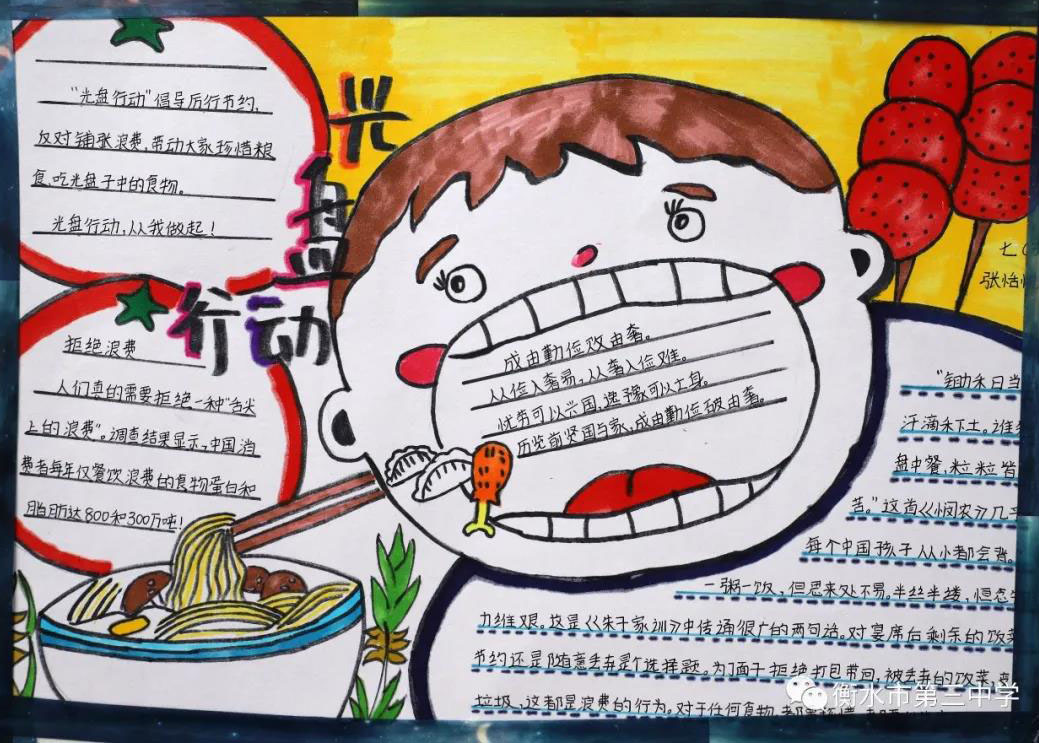 光盘行动
“光盘行动”倡导厉行节约,
反对铺张浪费,带动大家珍惜粮
食、吃光盘子中的食物。
光盘行动,从我做起!
拒绝浪费
人们真的需要拒绝一种“舌尖
上的浪费”。调查结果显示,中国消
费者每年仅餐饮浪费的食物蛋白和
脂肪达800和300万吨!
成由勤俭败由奢。
从俭入奢易,从奢入俭难。
忧劳可以兴国,逸豫可以亡身。
历览前贤国与家,成由勤俭破由奢。
七(
张恬
“锄禾日当
汗滴禾下土。谁
盘中餐,粒粒皆
苦。”这首《悯农》几乎
每个中国孩子从小都会背。
一粥一饭,但思来处不易。半丝半缕,恒念
力维艰。这是《朱子家训》中传诵很广的两句话。对宴席后剩余的饭菜
节约还是随意丢弃是个选择题。为了面子拒绝打包带回,被丢弃的饭菜,
垃圾,这都是浪费的行为。对于任何食物,都
衡水市第三中学